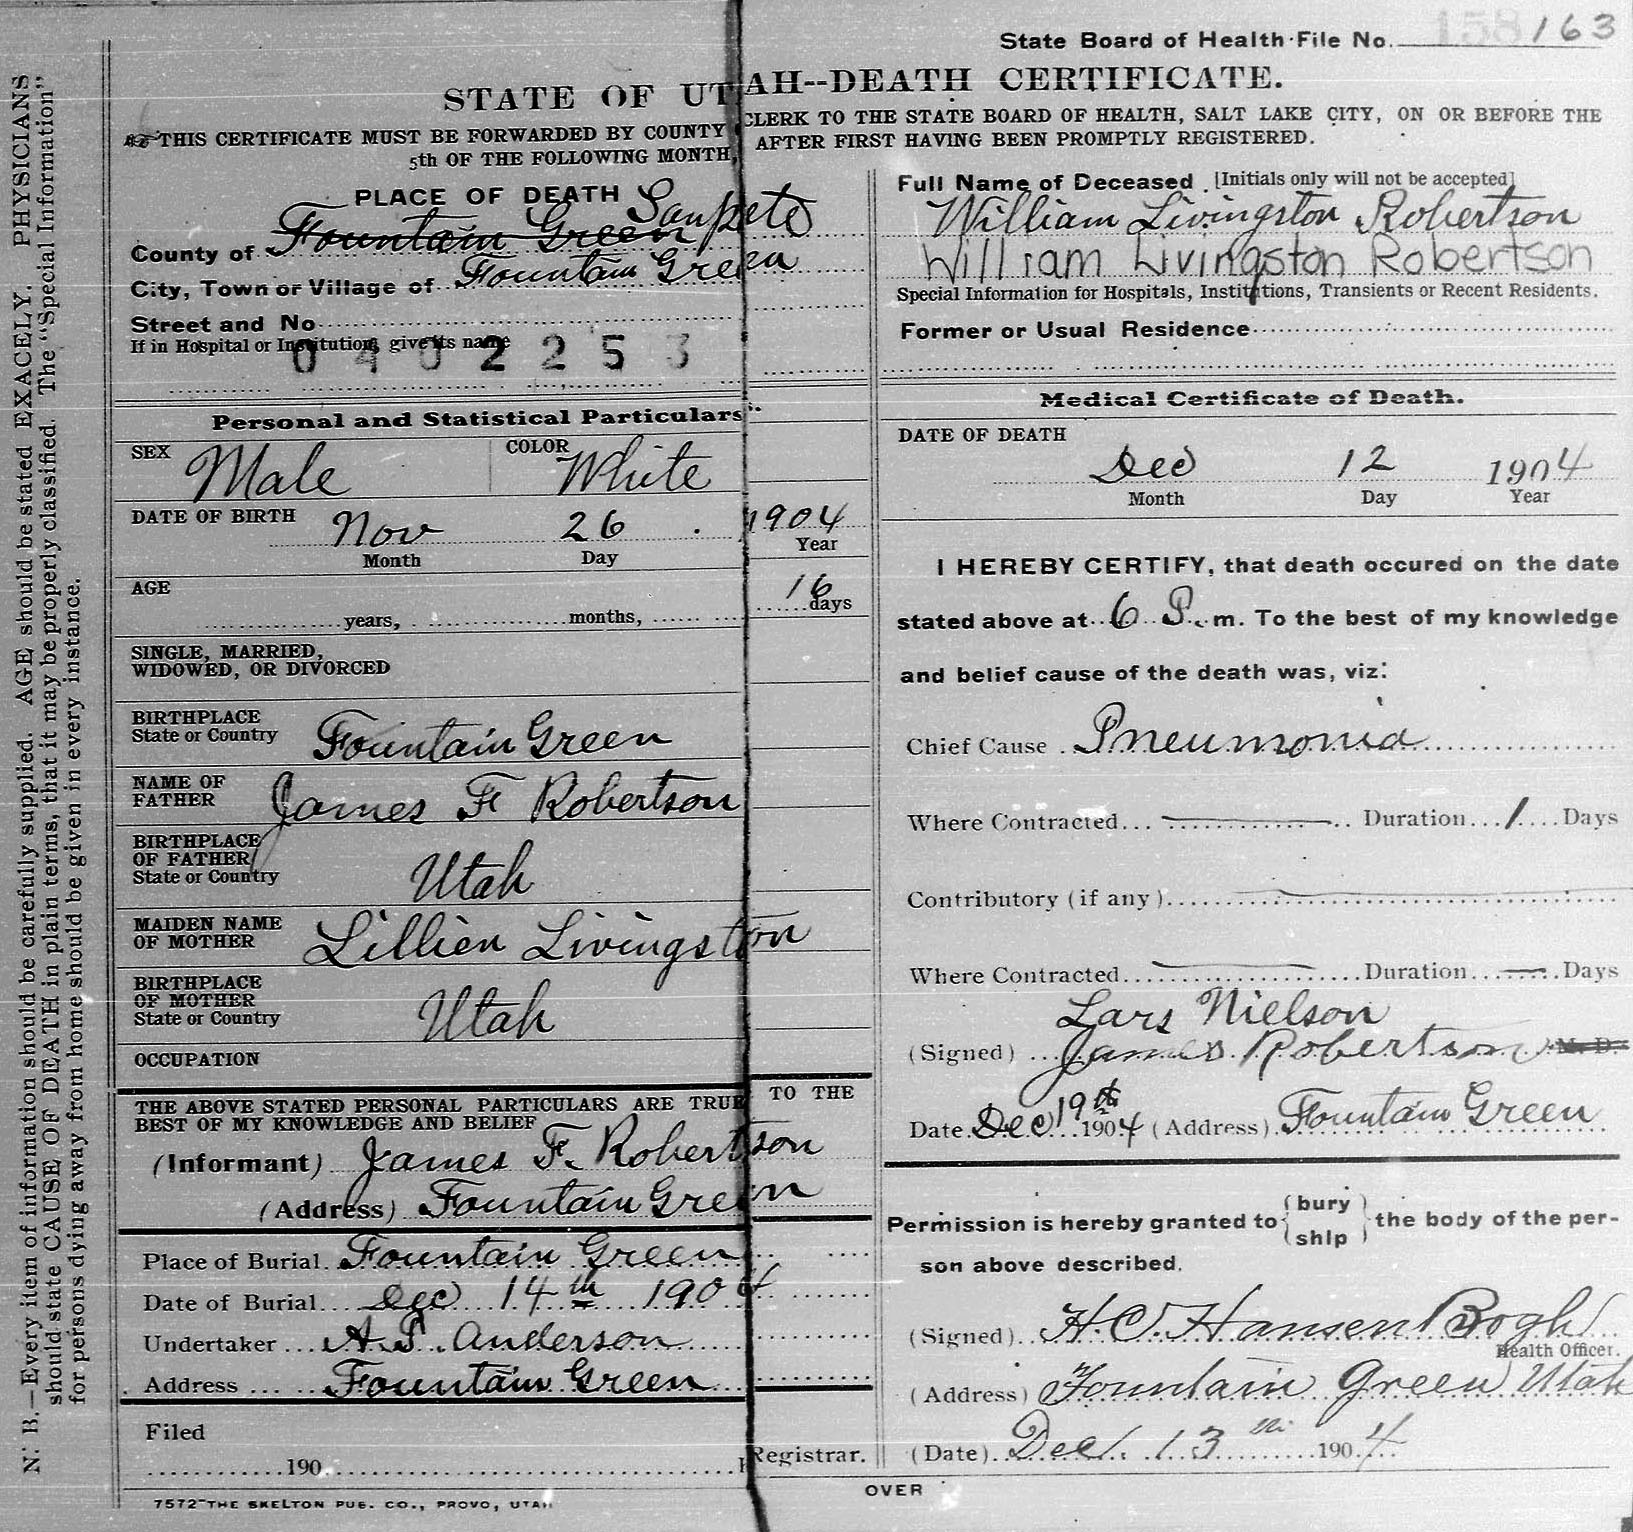 State Board of Health File No. 158 163
STATE OF UTAH--DEATH CERTIFICATE.
THIS CERTIFICATE MUST BE FORWARDED BY COUNTY CLERK TO THE STATE BOARD OF HEALTH, SALT LAKE CITY, ON OR BEFORE THE
5th OF THE FOLLOWING MONTH, AFTER FIRST HAVING BEEN PROMPTLY REGISTERED.
PLACE OF DEATH
County of Fountain Green Sanpete
City, Town or Village of Fountain Green
Street and No
If in Hospital or Institution, give its name
0402253
Personal and Statistical Particulars.
SEX Male COLOR White
DATE OF BIRTH Nov 26 1904
Month Day Year
AGE 16
years, months, days
SINGLE, MARRIED,
WIDOWED, OR DIVORCED
BIRTHPLACE
State or Country Fountain Green
NAME OF
FATHER James F Robertson
BIRTHPLACE
OF FATHER
State or Country Utah
MAIDEN NAME
OF MOTHER Lillien Livingston
BIRTHPLACE
OF MOTHER
State or Country Utah
OCCUPATION
THE ABOVE STATED PERSONAL PARTICULARS ARE TRUE TO THE
BEST OF MY KNOWLEDGE AND BELIEF
(Informant) James F. Robertson
(Address) Fountain Green
Place of Burial Fountain Green
Date of Burial Dec 14th 1904
Undertaker A.P. Anderson
Address Fountain Green
Filed
190 Registrar.
7572-THE SKELTON PUB. CO., PROVO, UTAH
Full Name of Deceased [Initials only will not be accepted]
William Livingston Robertson
William Livingston Robertson
Special Information for Hospitals, Institutions, Transients or Recent Residents.
Former or Usual Residence
Medical Certificate of Death.
DATE OF DEATH
Dec 12 1904
Month Day Year
I HEREBY CERTIFY, that death occured on the date
stated above at 6 P. m. To the best of my knowledge
and belief cause of the death was, viz:
Chief Cause Pneumonia
Where Contracted Duration 1 Days
Contributory (if any)
Where Contracted Duration Days
Lars Nielson
(Signed) James Robertson M. D.
Date Dec 19th 1904 (Address) Fountain Green
Permission is hereby granted to {bury ship} the body of the per-
son above described.
(Signed) H.C. Hansen Bogh
Health Officer.
(Address) Fountain Green Utah
(Date) Dec. 13th 1904
OVER
N. B.—Every item of information should be carefully supplied. AGE should be stated EXACELY. PHYSICIANS
should state CAUSE OF DEATH in plain terms, that it may be properly classified. The "Special Information"
for persons dying away from home should be given in every instance.